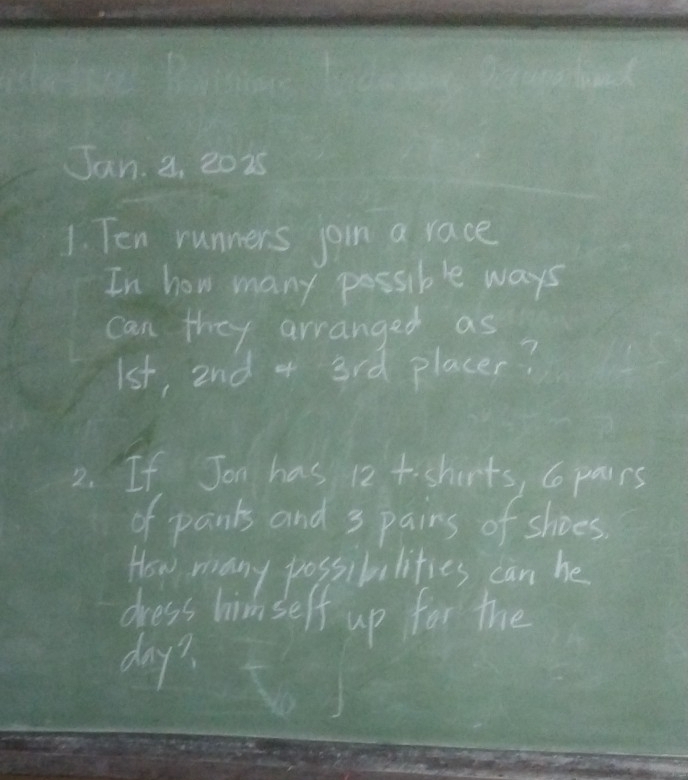 Jan. 2, 2025
1. Ten runners join a race
In how many possible ways
can they arranged as
1st, 2nd & 3rd placer?
2. If Jon has 12 t-shirts, 6 pairs
of pants and 3 pairs of shoes.
How many possibilities can he
dress himself up for the
day?